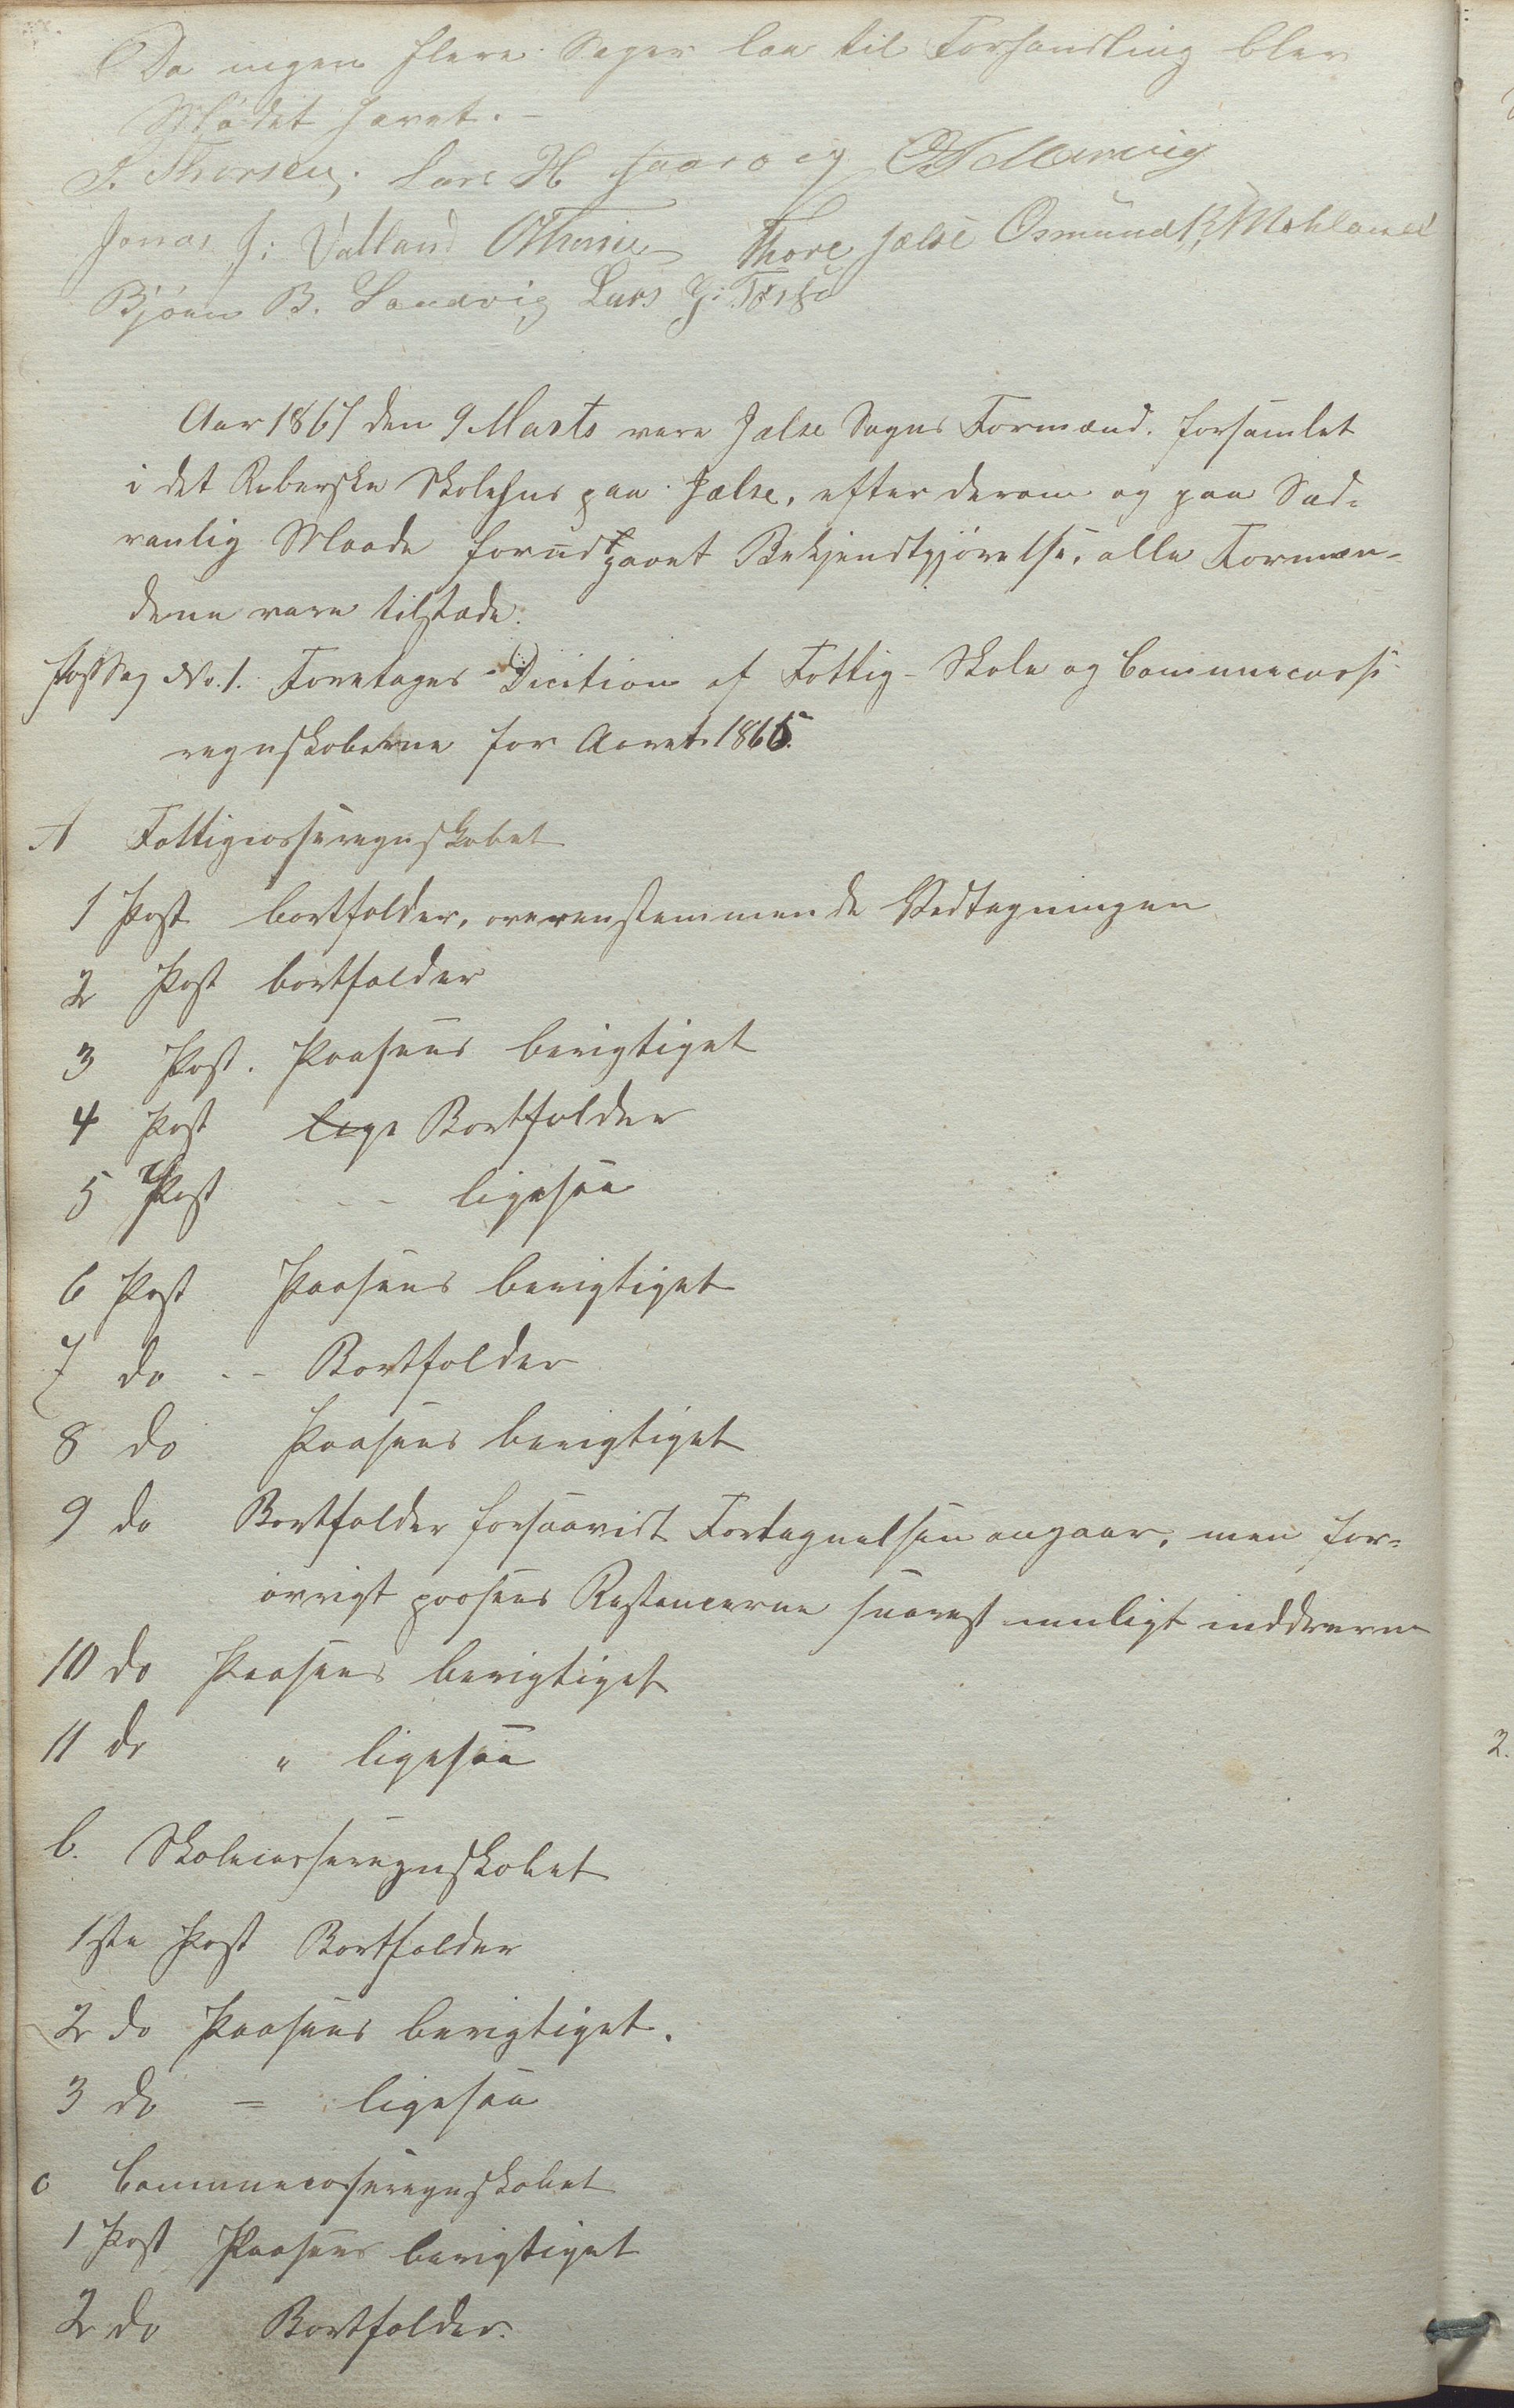 Da ingen flere Sager laa til Forhandling blev
Mødet hævet. -
S. Thorsen, Lars H
Jonas J: Vatland Thore Jælse Osmund
Bjørn B. Sandvig Lars
Aar 1867 den 9 Marts vare Jælse Sogns Formænd forsamlet
i det Raberske Skolehus paa Jælse, efter derom og paa Sæd-
vanlig Maade forud gaaet Bekjendtgjørelse, alle Formæn-
dene vare tilstæde.
Sag No. 1. Foretages Dicition af Fattig- Skole og Communecasse
regnskaberne for Aaret 1865.
A Fattigcasseregnskabet
1 Post bortfalder, overensstemmende Vedtagningen
2 Post bortfalder
3 Post. Paasees berigtiget
4 Post lige Bortfalder
5 Post - - ligesaa
6 Post Paasees berigtiget
7 do - - Bortfalder
8 do Paasees berigtiget
9 do Bortfalder forsaavidt Fortegnelsen angaar, men for-
øvrigt paasees Restancerne snarest muligt inddrevne
10 do Paasees berigtiget
11 do " ligesaa
b. Skolecasseregnskabet
1ste Post Bortfalder
2 do Paasees berigtiget.
3 do = ligesaa
c Communecasseregnskabet
1 Post Paasees berigtiget
2 do Bortfalder.
2.